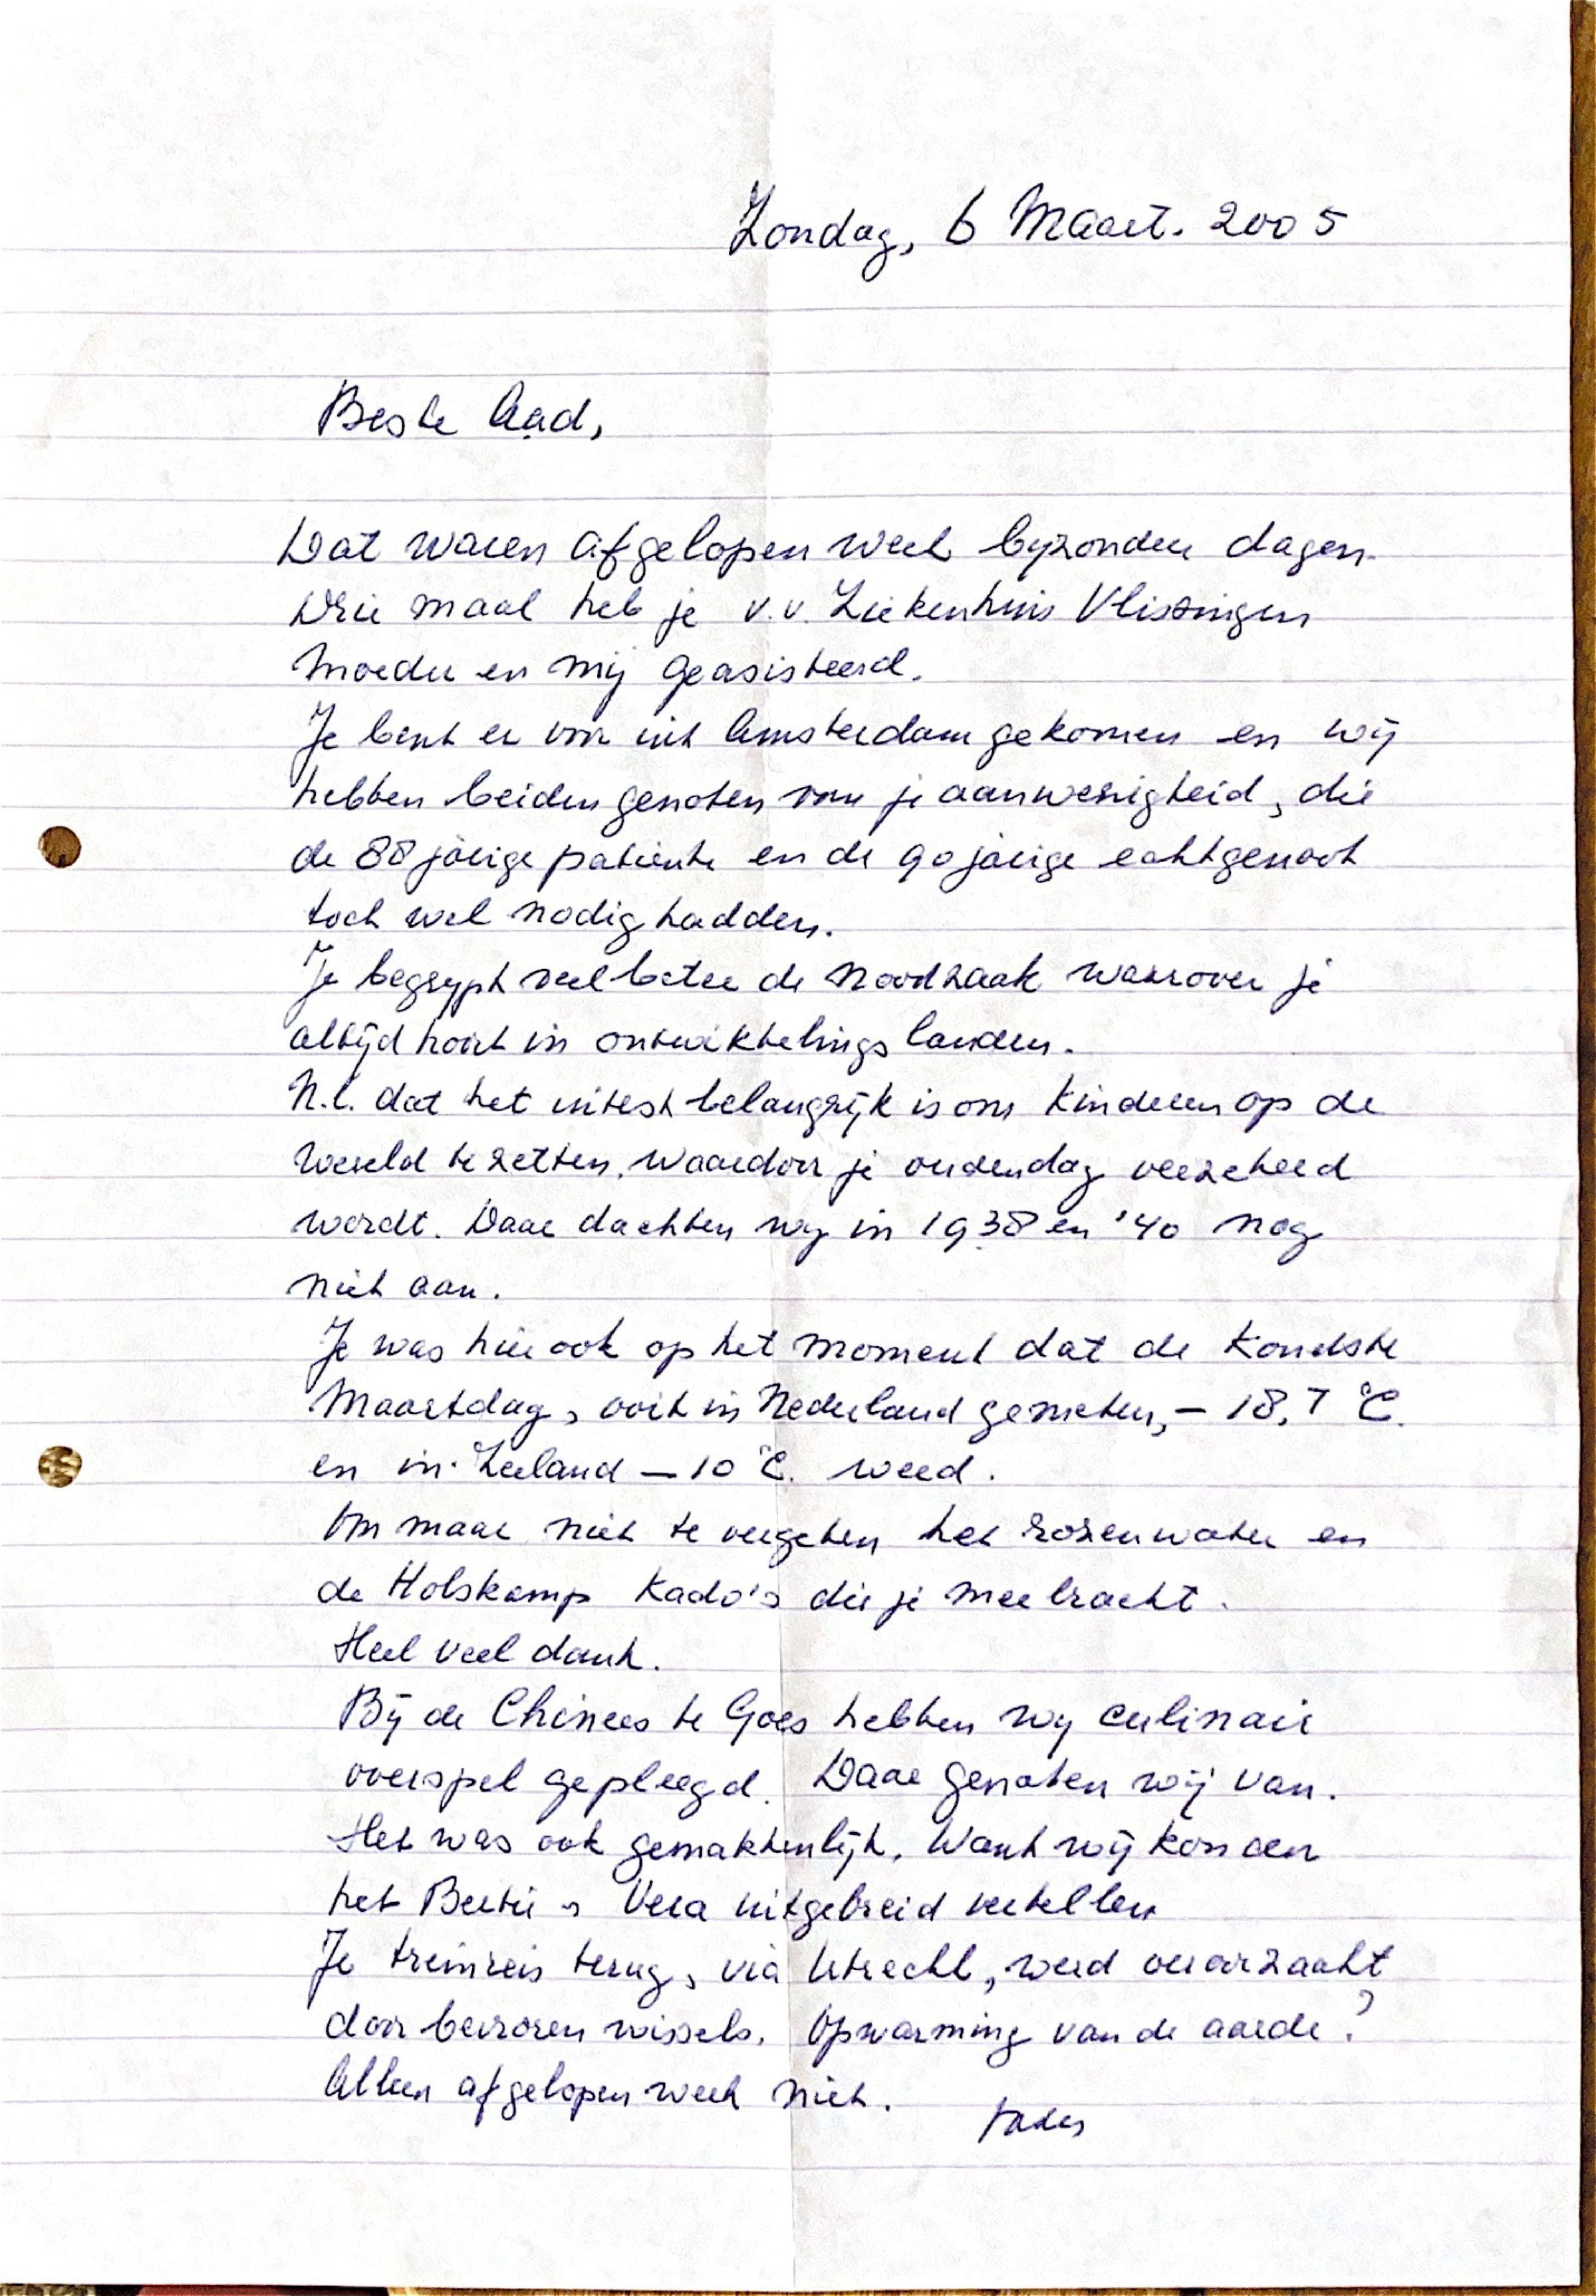 Zondag, 6 Maart. 2005
Beste Aad,
Dat waren afgelopen week byzondere dagen.
Drie maal heb je v.v. Ziekenhuis Vlissingen
Moeder en mij geasisteerd.
Je bent er voor uit Amsterdam gekomen en wij
hebben beiden genoten van je aanwezigheid, die
de 88 jarige patiente en de 90 jarige echtgenoot
toch wel nodig hadden.
Je begrypt veel beter de noodzaak waarover je
altijd hoort in ontwikkelings landen.
N.l. dat het uiterst belangrijk is om kinderen op de
wereld te zetten, waardoor je oudendag verzekerd
wordt. Daar dachten wy in 1938 en '40 nog
niet aan.
Je was hier ook op het moment dat de koudste
Maartdag, ooit in Nederland gemeten, - 18,7 °C.
en in Zeeland - 10 °C. werd.
Om maar niet te vergeten het rozenwater en
de Holskamp Kado's die je meebracht.
Heel veel dank.
Bij de Chinees te Goes hebben wy culinair
overspel gepleegd. Daar genoten wij van.
Het was ook gemakkenlijk, want wij konden
het Bertie en Vera uitgebreid vertellen
Je treinreis terug, via Utrecht, werd veroorzaakt
door bevroren wissels. Opwarming van de aarde?
Alleen afgelopen week niet.
Vader